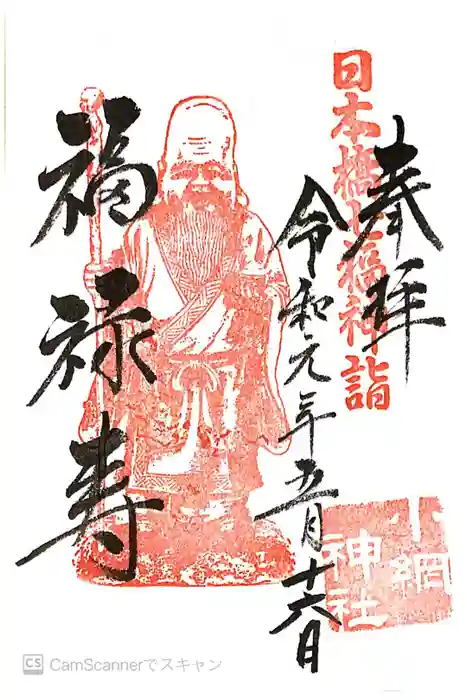 奉拝
日本橋七福神詣
令和元年五月十六日
福禄寿
小網
神社
CS CamScannerでスキャン